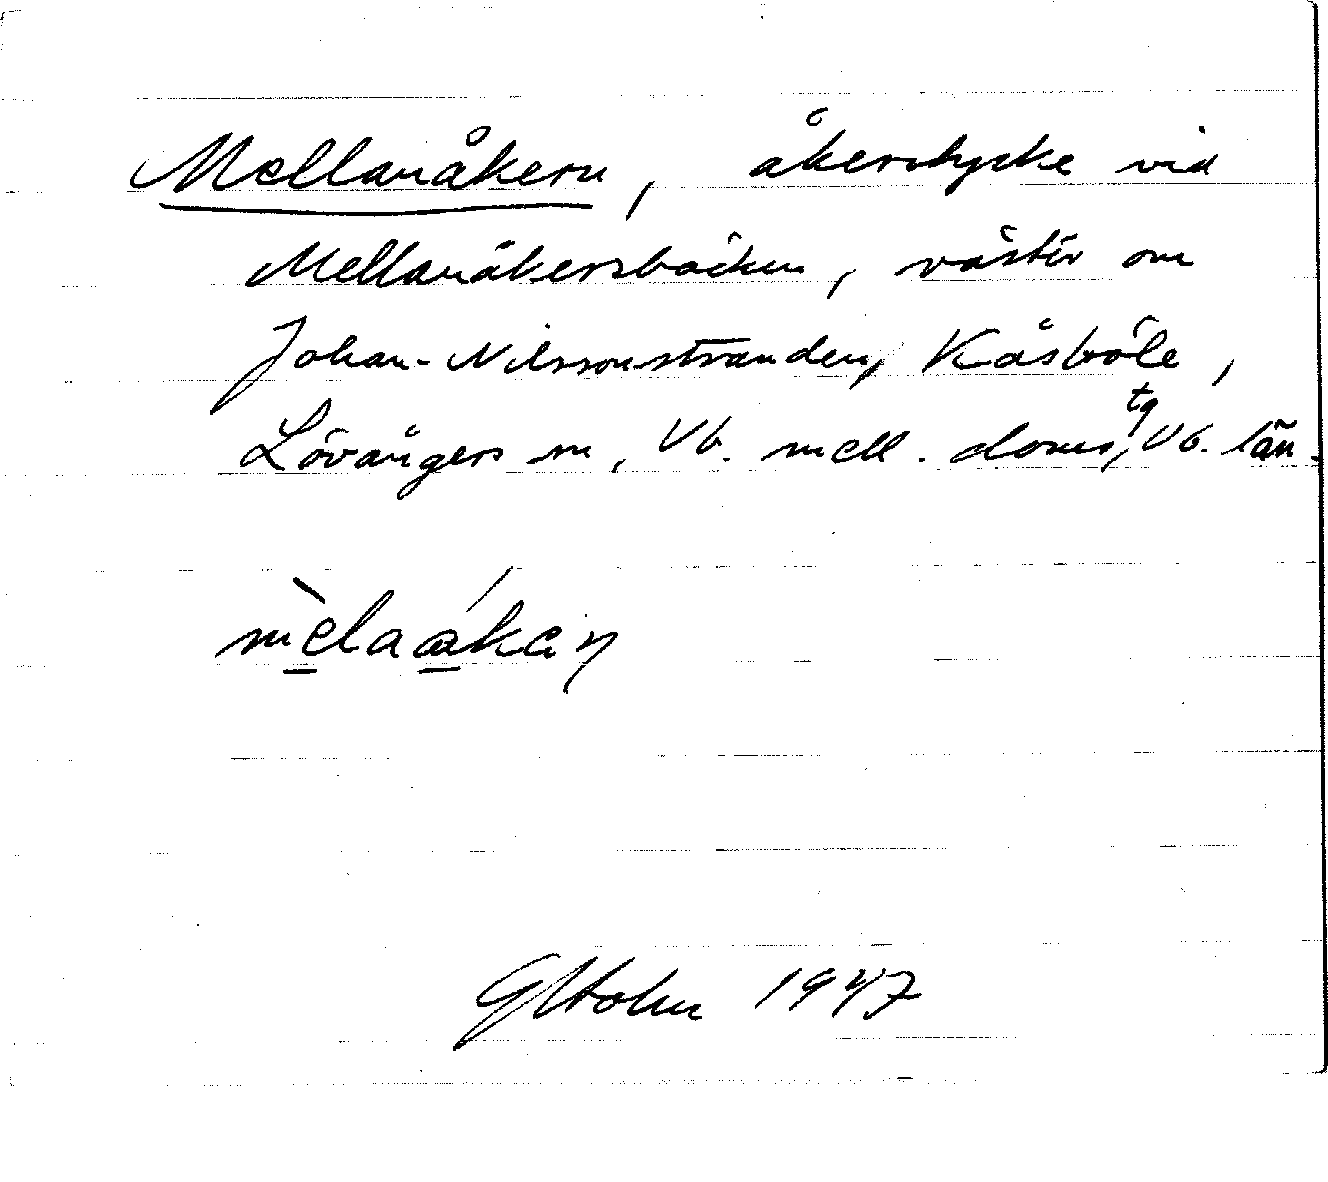 Mellanåkern, åkerstycke vid
Mellanåkersbäcken, väster om
Johan-Nilssonstranden, Kåsböle,
Lövångers sn, Vb. mell. doms tg, Vb. län.
mèlaákaṇ
GHolm 1947